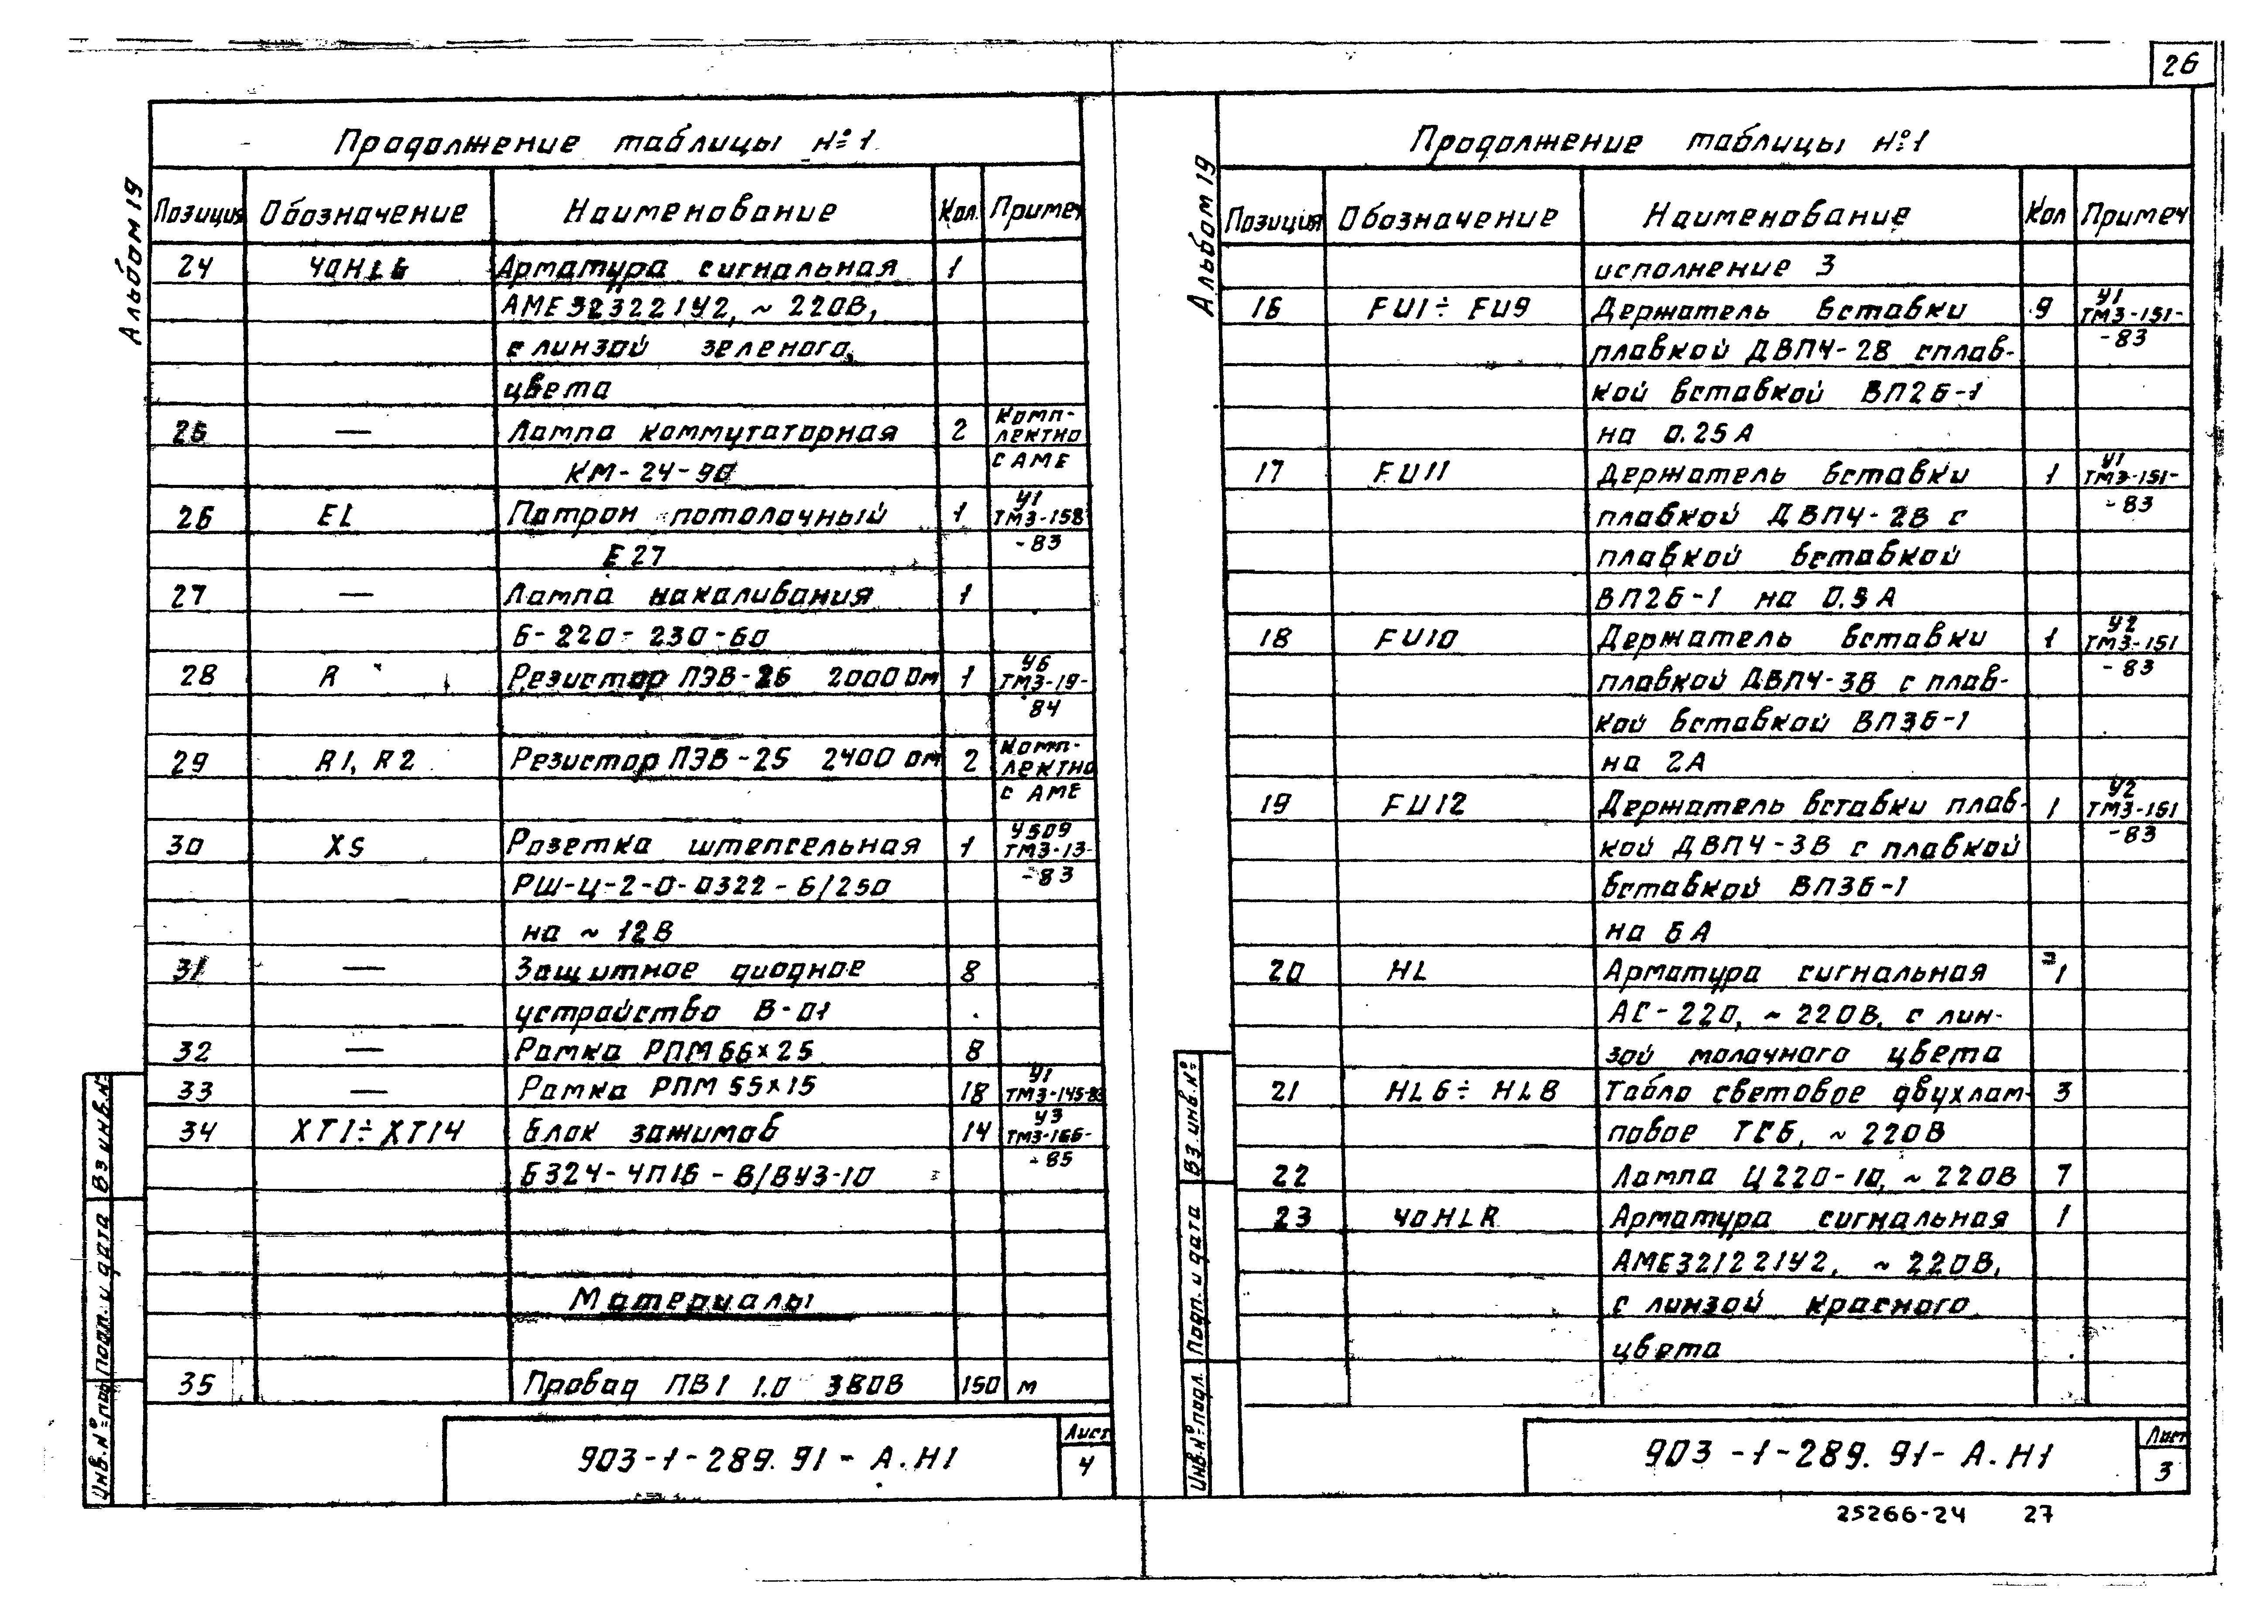 26
Альбом 19
Продолжение таблицы №1
Позиция Обозначение Наименование Кол. Примеч
24 40HLG Арматура сигнальная 1
АМЕ323221У2, ~ 220В,
с линзой зеленого
цвета
Комп-
25 — Лампа коммутаторная 2 лектно
КМ-24-90 с АМЕ
У1
26 EL Патрон потолочный 1 ТМ3-158
Е27 -83
27 — Лампа накаливания 1
Б-220-230-60
У6
28 R Резистор ПЭВ-25 2000 Ом 1 ТМ3-19-
84
Комп-
29 R1, R2 Резистор ПЭВ-25 2400 Ом 2 лектно
с АМЕ
У509
30 XS Розетка штепсельная 1 ТМ3-13-
РШ-Ц-2-0-0322-6/250 -83
на ~ 12В
31 — Защитное диодное 8
устройство В-01
32 — Рамка РПМ 66×25 8
У1
33 — Рамка РПМ 55×15 18 ТМ3-145-83
У3
34 XT1÷XT14 Блок зажимов 14 ТМ3-166-
Б324-4П16-В/ВУ3-10 -85
Материалы
35 Провод ПВ1 1.0 380В 150 м
903-1-289.91-А.Н1
Лист
4
Инв.№подл Подп. и дата Вз инв.№
Альбом 19
Продолжение таблицы №1
Позиция Обозначение Наименование Кол Примеч
исполнение 3
У1
16 FU1÷FU9 Держатель вставки 9 ТМ3-151-
плавкой ДВП4-2В с плав- -83
кой вставкой ВП2Б-1
на 0.25А
У1
17 FU11 Держатель вставки 1 ТМ3-151-
плавкой ДВП4-2В с -83
плавкой вставкой
ВП2Б-1 на 0.5А
У2
18 FU10 Держатель вставки 1 ТМ3-151
плавкой ДВП4-3В с плав- -83
кой вставкой ВП3Б-1
на 2А
У2
19 FU12 Держатель вставки плав- 1 ТМ3-151
кой ДВП4-3В с плавкой -83
вставкой ВП3Б-1
на 5А
20 HL Арматура сигнальная 1
АС-220, ~ 220В, с лин-
зой молочного цвета
21 HL6÷HL8 Табло световое двухлам- 3
повое ТСБ, ~ 220В
22 Лампа Ц220-10, ~ 220В 7
23 40HLR Арматура сигнальная 1
АМЕ321221У2, ~ 220В,
с линзой красного
цвета
903-1-289.91-А.Н1
Лист
3
Инв.№подл. Подп. и дата Вз. инв.№
25266-24 27